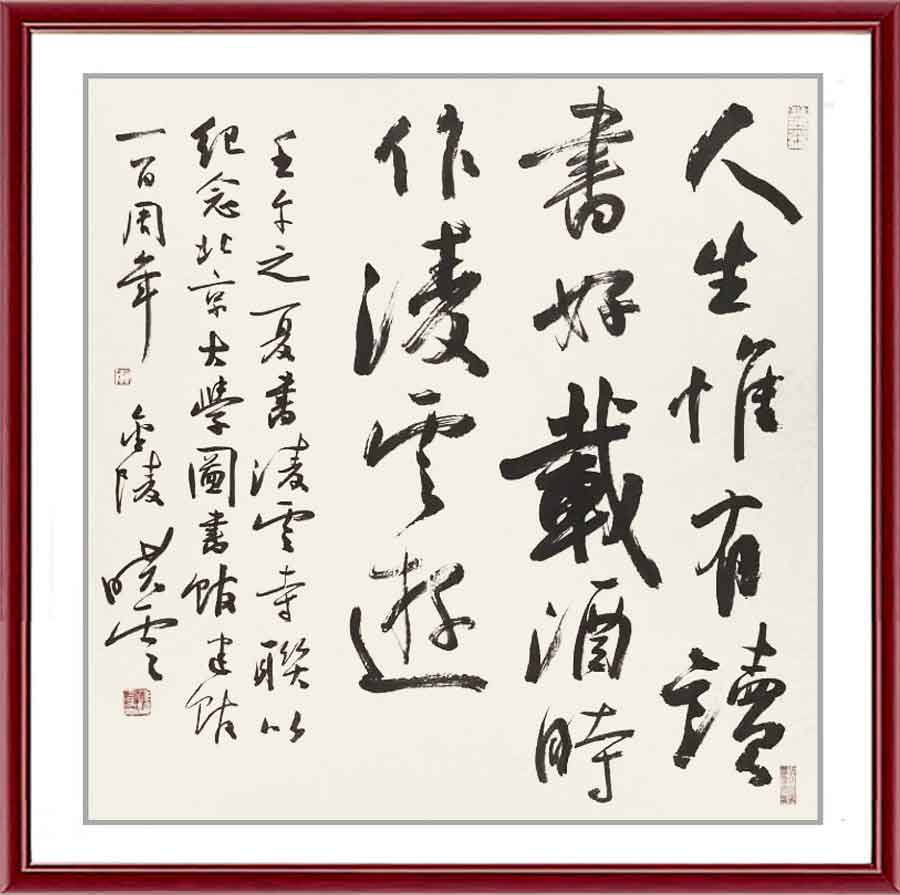 人生惟有讀
書好載酒時
作凌雲遊
壬午之夏書凌雲寺聯以
紀念北京大學圖書館建館
一百周年
金陵曉雲